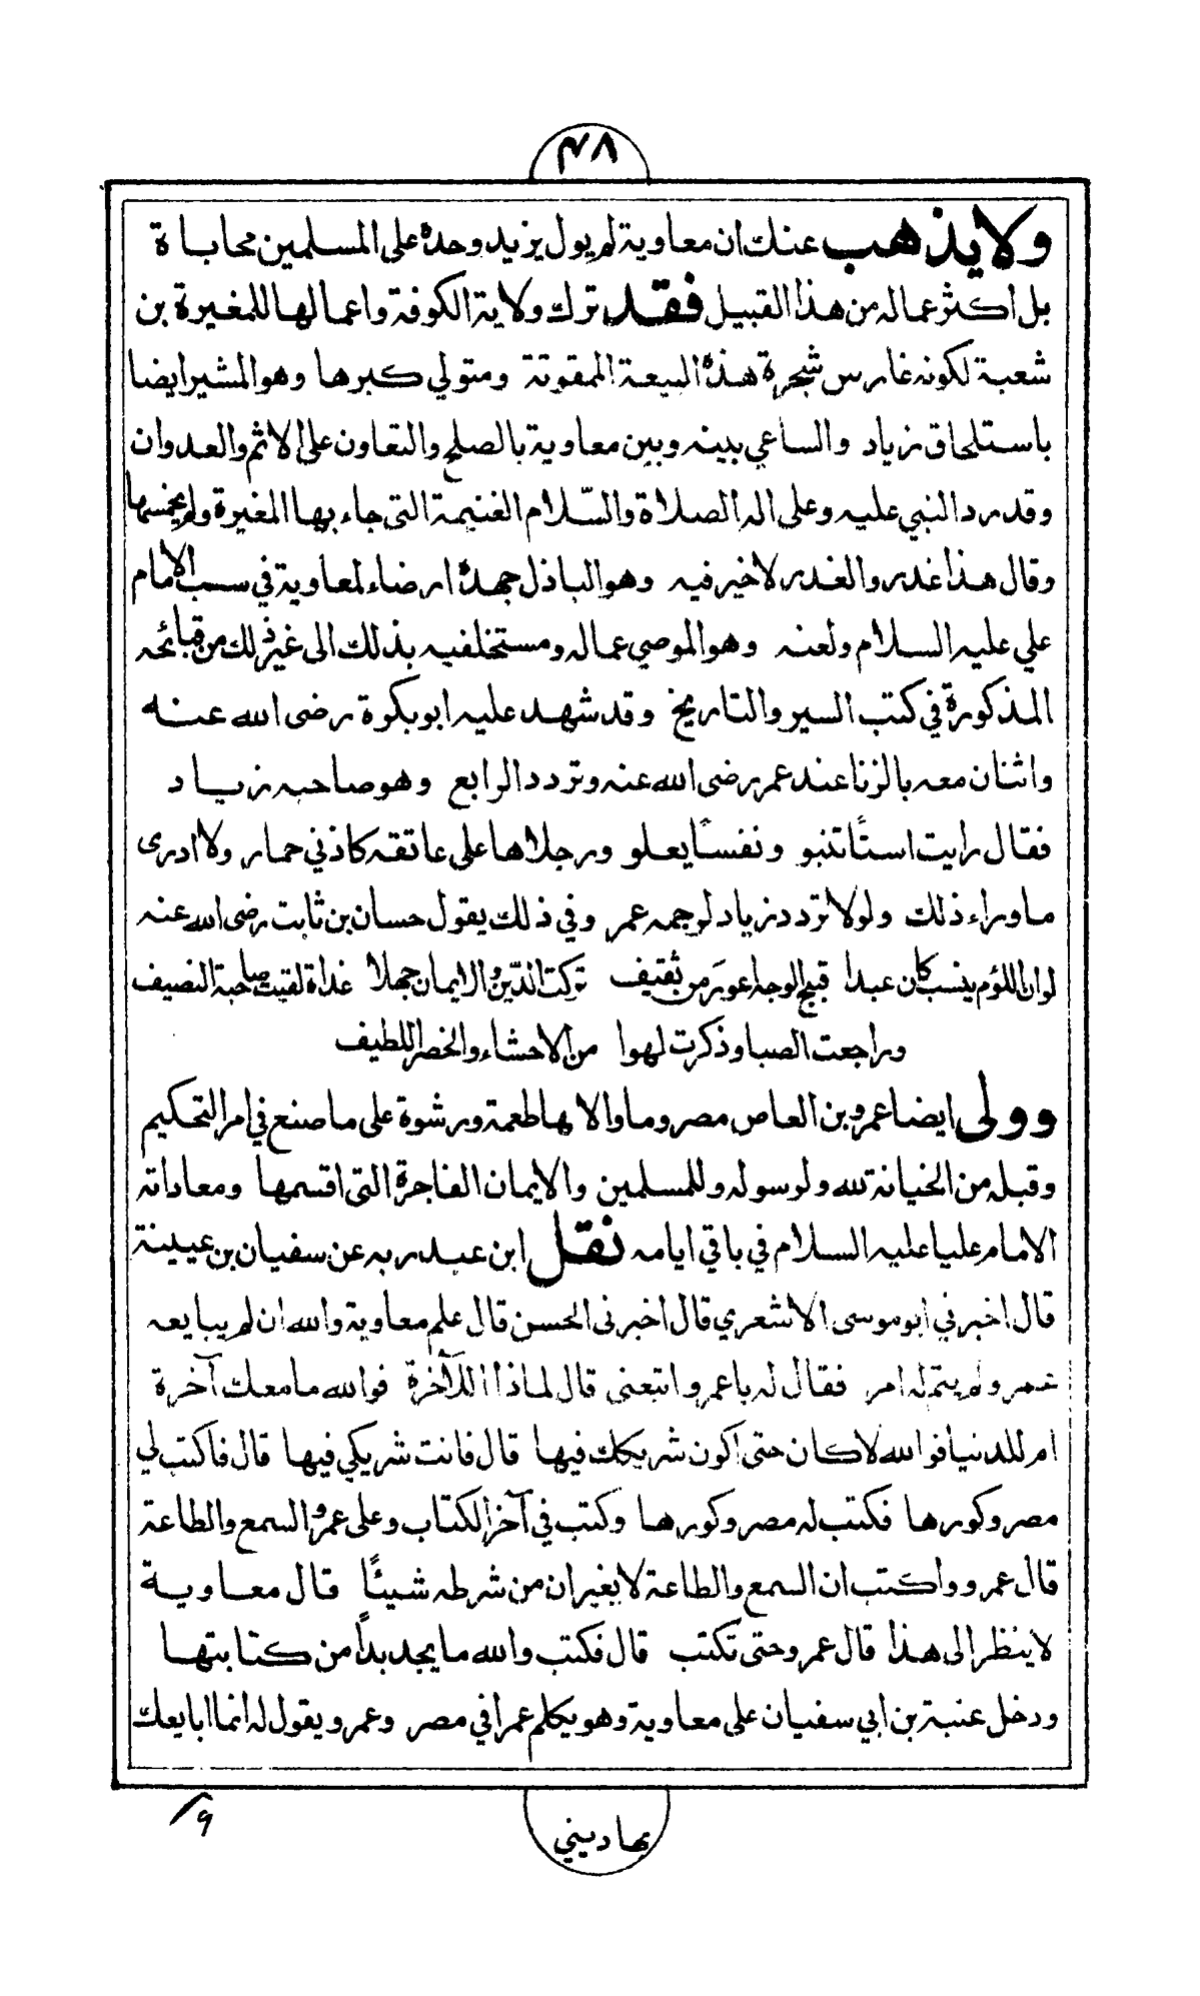 ٤٨
ولا يذهب عنك ان معاوية لم يول يزيد وحده على المسلمين محاباة
بل اكثر عماله من هذا القبيل فقد ترك ولاية الكوفة واعمالها للمغيرة بن
شعبة لكونه غارس شجرة هذه البيعة الممقوتة ومتولي كبرها وهو المشير ايضا
باستلحاق زياد والساعي بينه وبين معاوية بالصلح والتعاون على الاثم والعدوان
وقد رد النبي عليه وعلى اله الصلاة والسّلام الغنيمة التي جاء بها المغيرة ولم يخمسها
وقال هذا غدر والغدر لا خير فيه وهو الباذل جهده ارضاء لمعاوية في سب الامام
علي عليه السلام ولعنه وهو الموصي عماله ومستخلفيه بذلك الى غير ذلك من قبائحه
المذكورة في كتب السير والتاريخ وقد شهد عليه ابو بكرة رضى الله عنه
واثنان معه بالزنا عند عمر رضى الله عنه وتردد الرابع وهو صاحبه زياد
فقال رايت استًا تنبو ونفسًا يعلو ورجلاها على عاتقه كاذني حمار ولا ادرى
ما وراء ذلك ولولا تردد زياد لرجمه عمر وفي ذلك يقول حسان بن ثابت رضى الله عنه
لو ان اللؤم ينسب كان عبدا قبيح الوجه اعورَ من ثقيف تركت الدّين والايمان جهلا غداة لقيت صاحبة النصيف
وراجعت الصبا وذكرت لهوا من الاحشاء والخصر اللطيف
وولى ايضا عمرو بن العاص مصر وما والاها طعمة ورشوة على ما صنع في امر التحكيم
وقبله من الخيانة لله ولرسوله وللمسلمين والايمان الفاجرة التى اقسمها ومعاداته
الامام عليا عليه السلام في باقي ايامه نقل ابن عبد ربه عن سفيان بن عيينة
قال اخبرني ابو موسى الاشعري قال اخبرنى الحسن قال علم معاوية والله ان لم يبايعه
عمرو لم يتم له امر فقال له يا عمرو اتبعنى قال لماذا اللآخرة فوالله ما معك آخرة
ام للدنيا فوالله لا كان حتى اكون شريكك فيها قال فانت شريكي فيها قال فاكتب لي
مصر وكورها فكتب له مصر وكورها وكتب في آخر الكتاب وعلى عمرو السمع والطاعة
قال عمرو واكتب ان السمع والطاعة لا يغيران من شرطه شيئًا قال معاوية
لا ينظر الى هذا قال عمرو حتى تكتب قال فكتب والله ما يجد بدًا من كتابتها
ودخل عتبة بن ابي سفيان على معاوية وهو يكلم عمرا في مصر وعمرو يقول له انما ابايعك
بها ديني